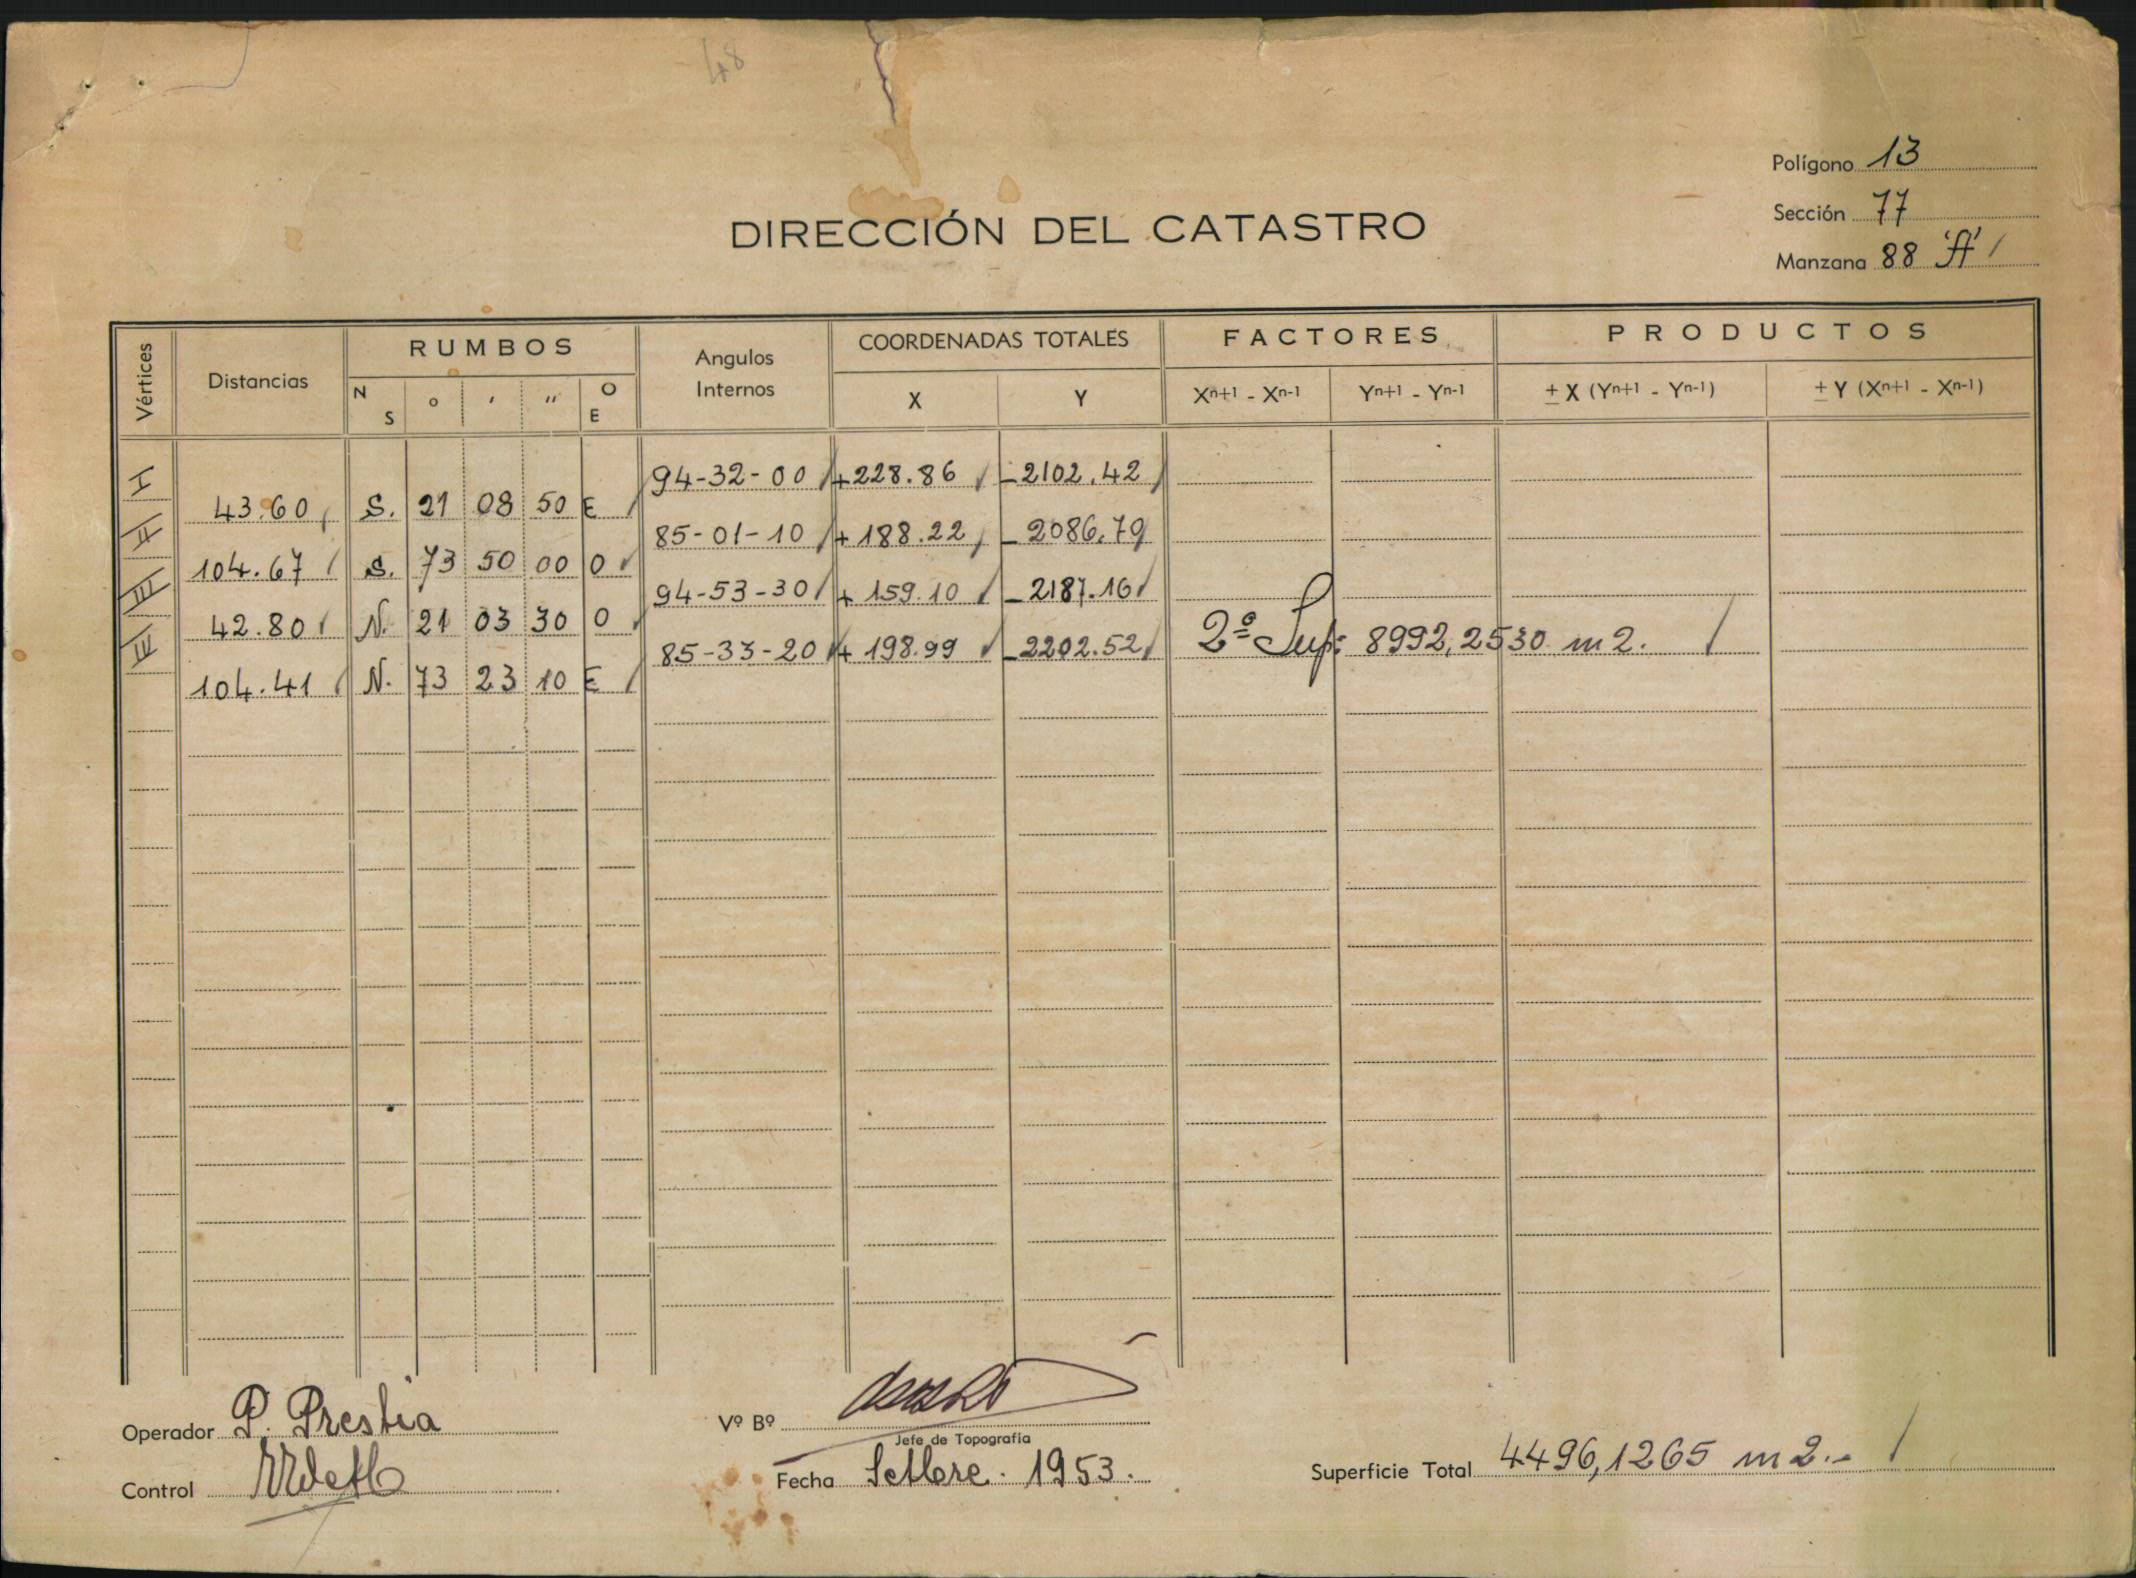 48
Polígono 13
Sección 77
Manzana 88 'A'
DIRECCIÓN DEL CATASTRO
Vértices Distancias RUMBOS Angulos Internos COORDENADAS TOTALES FACTORES PRODUCTOS
N S ° ' '' O E X Y Xn+1 - Xn-1 Yn+1 - Yn-1 ± X (Yn+1 - Yn-1) ± Y (Xn+1 - Xn-1)
I 94-32-00 +228.86 -2102.42
43.60 S. 21 08 50 E
II 85-01-10 +188.22 -2086.79
104.67 S. 73 50 00 O
III 94-53-30 +159.10 -2187.16
42.80 N. 21 03 30 O
IV 85-33-20 +198.99 -2202.52 2ª Sup: 8992,2530 m2.
104.41 N. 73 23 10 E
Operador P. Prestia
Vº Bº
Jefe de Topografía
Control
Fecha Setbre. 1953.
Superficie Total 4496,1265 m2.-